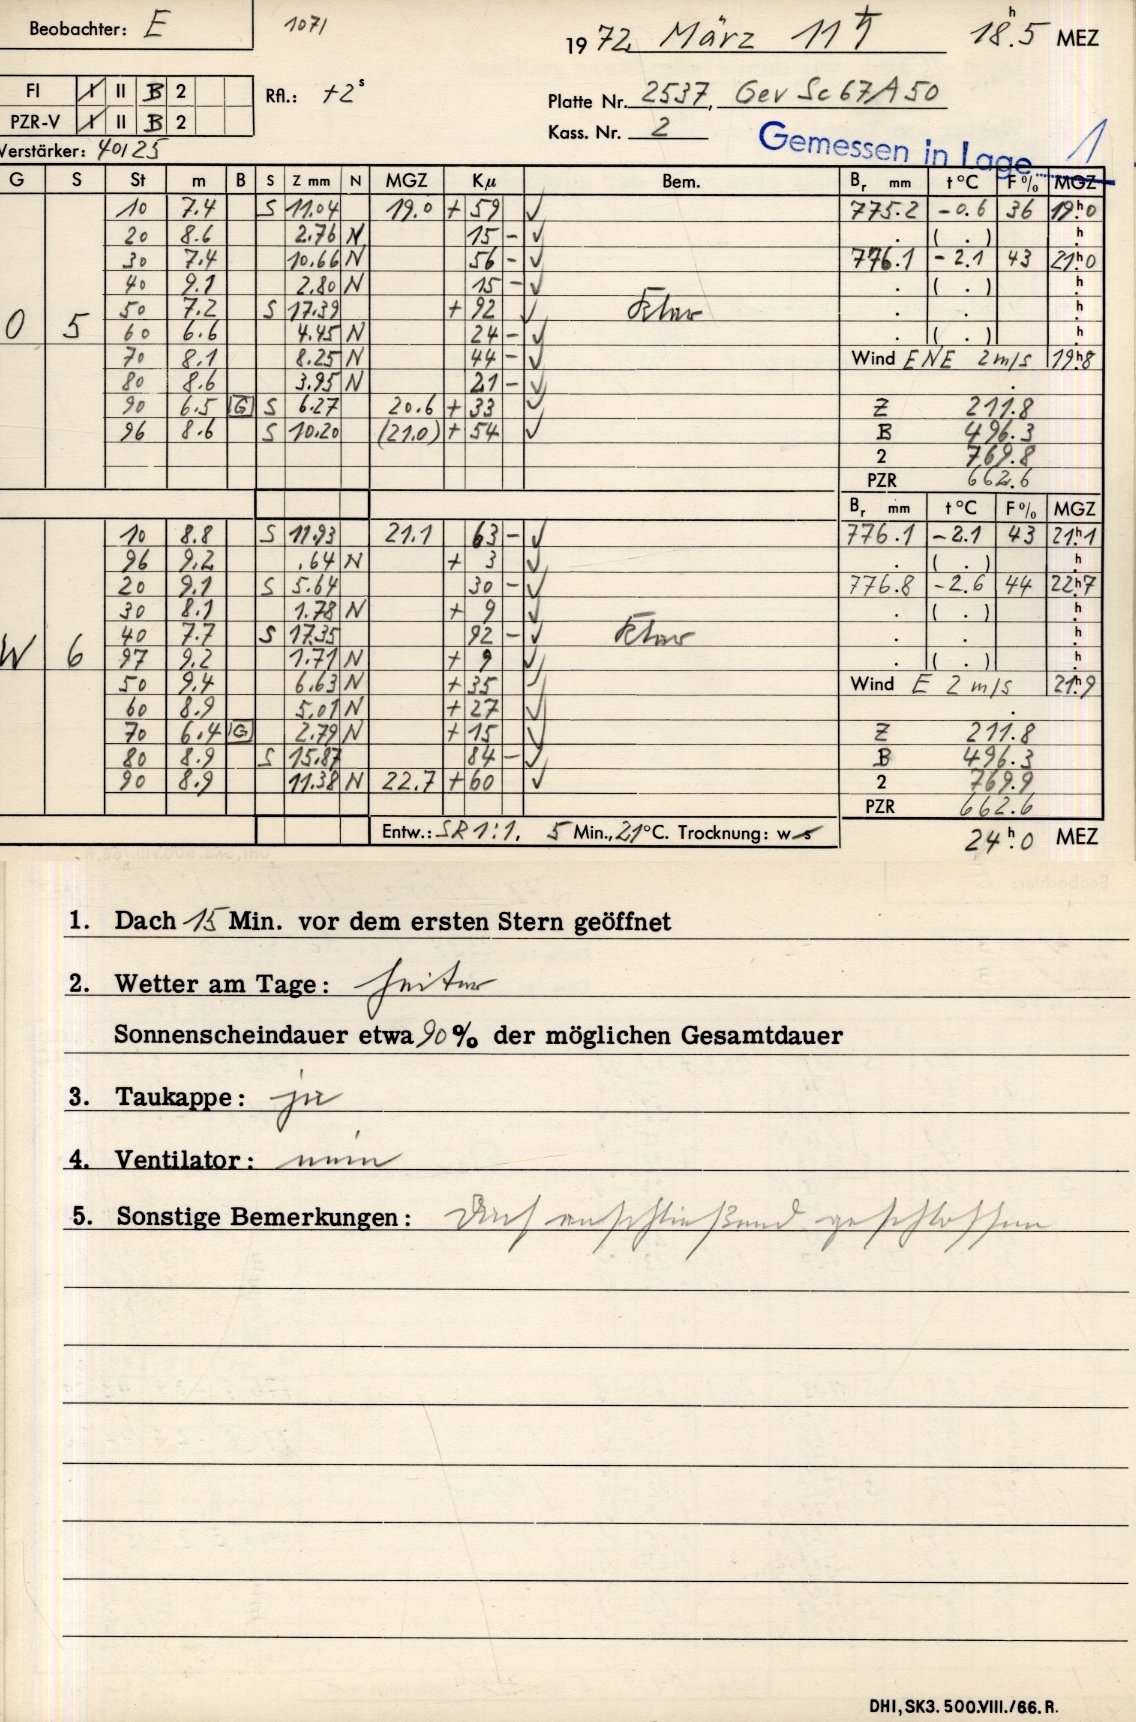 Beobachter: E 1071 1972 März 11 ♄ 18h.5 MEZ
FI I II B 2 Rfl.: +2s Platte Nr. 2537, Gev Sc 67A50
PZR-V I II B 2 Kass. Nr. 2
Verstärker: 40/25 Gemessen in Lage 1
G S St m B S Z mm N MGZ Kμ Bem. Br mm t°C F% MGZ
10 7.4 S 11.04 19.0 + 59 ✓ 775.2 -0.6 36 19h0
20 8.6 2.76 N 15 - ✓ . ( . ) h
30 7.4 10.66 N 56 - ✓ 776.1 -2.1 43 21h0
40 9.1 2.80 N 15 - ✓ . ( . ) h
50 7.2 S 17.39 + 92 ✓ Klar . . h
O 5 60 6.6 4.45 N 24 - ✓ . ( . ) h
70 8.1 8.25 N 44 - ✓ Wind ENE 2m/s 19h8
80 8.6 3.95 N 21 - ✓ .
90 6.5 G S 6.27 20.6 + 33 ✓ Z 211.8
96 8.6 S 10.20 (21.0) + 54 ✓ B 496.3
2 769.8
PZR 662.6
Br mm t°C F% MGZ
10 8.8 S 11.93 21.1 63 - ✓ 776.1 -2.1 43 21h1
96 9.2 .64 N + 3 ✓ . ( . ) h
20 9.1 S 5.64 30 - ✓ 776.8 -2.6 44 22h7
30 8.1 1.78 N + 9 ✓ . ( . ) h
40 7.7 S 17.35 92 - ✓ Klar . . h
W 6 97 9.2 1.71 N + 9 ✓ . ( . ) h
50 9.4 6.63 N + 35 ✓ Wind E 2 m/s 21h9
60 8.9 5.01 N + 27 ✓ .
70 6.4 G 2.79 N + 15 ✓ Z 211.8
80 8.9 S 15.87 84 - ✓ B 496.3
90 8.9 11.38 N 22.7 + 60 ✓ 2 769.9
PZR 662.6
Entw.: SR 1:1. 5 Min., 21°C. Trocknung: w s 24h.0 MEZ
1. Dach 15 Min. vor dem ersten Stern geöffnet
2. Wetter am Tage: heiter
Sonnenscheindauer etwa 90% der möglichen Gesamtdauer
3. Taukappe: ja
4. Ventilator: nein
5. Sonstige Bemerkungen: Dach anschließend geschlossen
DHI, SK3. 500.VIII./66. R.